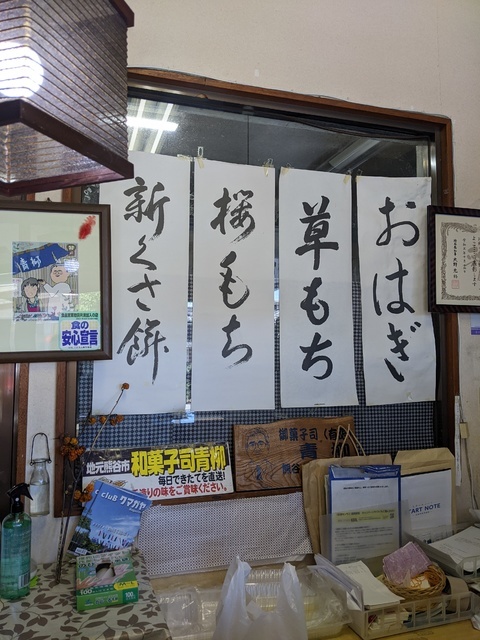 おはぎ
草もち
桜もち
新くさ餅
青柳
食の
安心宣言
地元熊谷市
和菓子司青柳
毎日できたてを直送!
造りの味をご賞味ください。
御菓子司
青
club クマガヤ
START NOTE
100